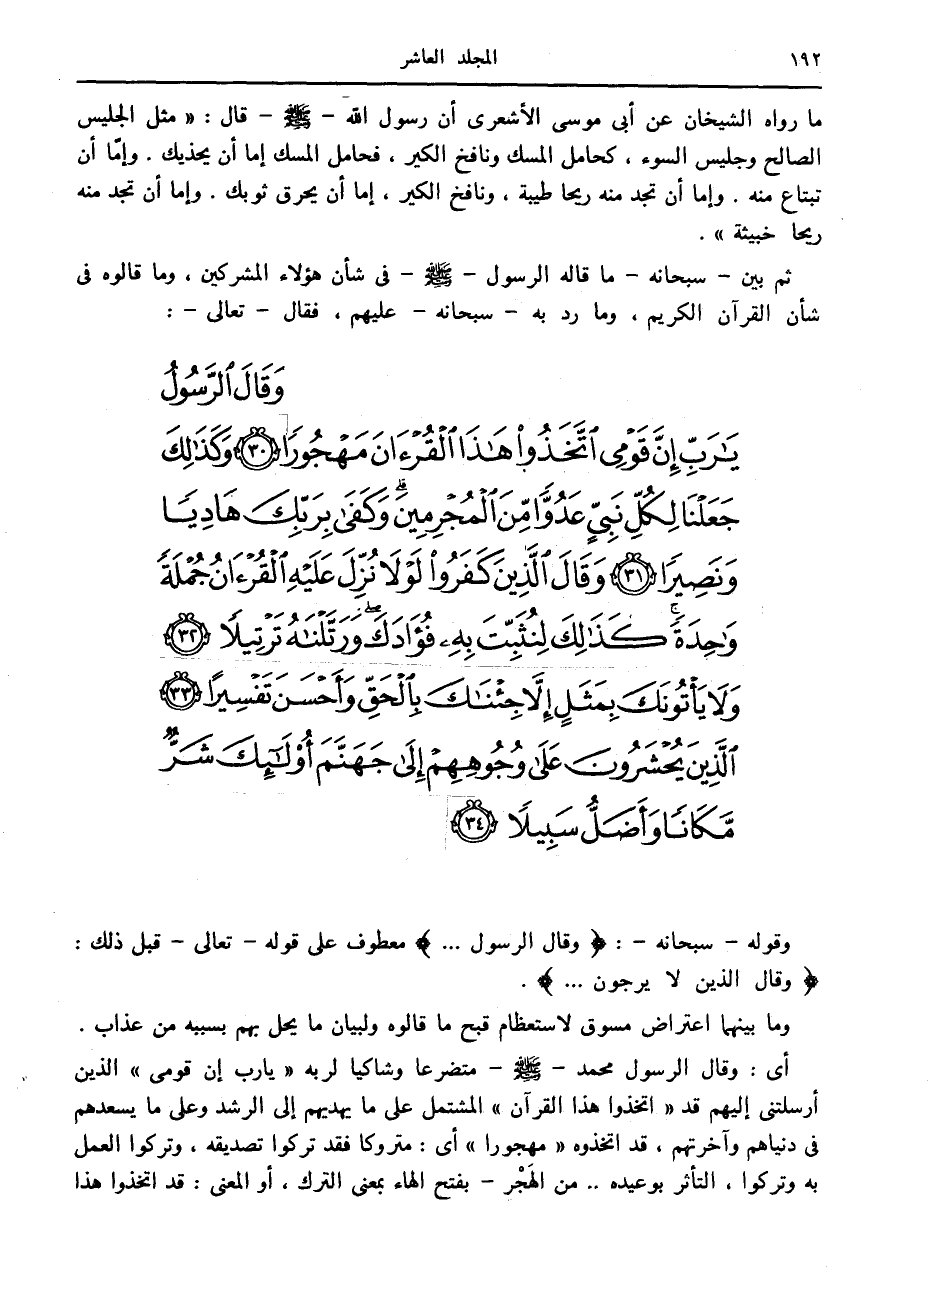 ١٩٢ المجلد العاشر
ما رواه الشيخان عن أبى موسى الأشعرى أن رسول الله – ﷺ – قال : « مثل الجليس
الصالح وجليس السوء ، كحامل المسك ونافخ الكير ، فحامل المسك إما أن يحذيك . وإمّا أن
تبتاع منه . وإما أن تجد منه ريحا طيبة ، ونافخ الكير ، إما أن يحرق ثوبك . وإما أن تجد منه
ريحا خبيثة » .
ثم بين – سبحانه – ما قاله الرسول – ﷺ – فى شأن هؤلاء المشركين ، وما قالوه فى
شأن القرآن الكريم ، وما رد به – سبحانه – عليهم ، فقال – تعالى – :
وَقَالَ ٱلرَّسُولُ
يَٰرَبِّ إِنَّ قَوْمِى ٱتَّخَذُوا۟ هَٰذَا ٱلْقُرْءَانَ مَهْجُورًا ٣٠ وَكَذَٰلِكَ
جَعَلْنَا لِكُلِّ نَبِىٍّ عَدُوًّا مِّنَ ٱلْمُجْرِمِينَ ۗ وَكَفَىٰ بِرَبِّكَ هَادِيًا
وَنَصِيرًا ٣١ وَقَالَ ٱلَّذِينَ كَفَرُوا۟ لَوْلَا نُزِّلَ عَلَيْهِ ٱلْقُرْءَانُ جُمْلَةً
وَٰحِدَةً ۚ كَذَٰلِكَ لِنُثَبِّتَ بِهِۦ فُؤَادَكَ ۖ وَرَتَّلْنَٰهُ تَرْتِيلًا ٣٢
وَلَا يَأْتُونَكَ بِمَثَلٍ إِلَّا جِئْنَٰكَ بِٱلْحَقِّ وَأَحْسَنَ تَفْسِيرًا ٣٣
ٱلَّذِينَ يُحْشَرُونَ عَلَىٰ وُجُوهِهِمْ إِلَىٰ جَهَنَّمَ أُو۟لَٰٓئِكَ شَرٌّ
مَّكَانًا وَأَضَلُّ سَبِيلًا ٣٤
وقوله – سبحانه – : ﴿ وقال الرسول ... ﴾ معطوف على قوله – تعالى – قبل ذلك :
﴿ وقال الذين لا يرجون ... ﴾ .
وما بينهما اعتراض مسوق لاستعظام قبح ما قالوه ولبيان ما يحل بهم بسببه من عذاب .
أى : وقال الرسول محمد – ﷺ – متضرعا وشاكيا لربه « يارب إن قومى » الذين
أرسلتنى إليهم قد « اتخذوا هذا القرآن » المشتمل على ما يهديهم إلى الرشد وعلى ما يسعدهم
فى دنياهم وآخرتهم ، قد اتخذوه « مهجورا » أى : متروكا فقد تركوا تصديقه ، وتركوا العمل
به وتركوا ، التأثر بوعيده .. من الهَجْر – بفتح الهاء بمعنى الترك ، أو المعنى : قد اتخذوا هذا